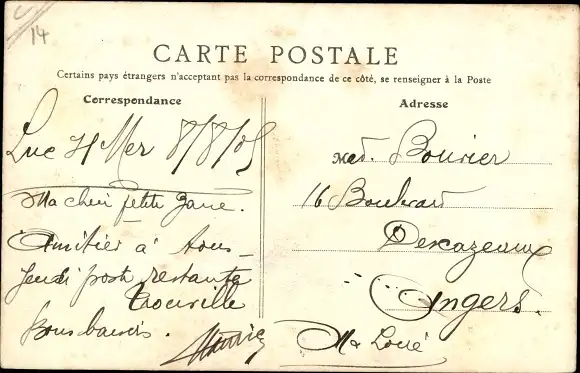 14
CARTE POSTALE
Certains pays étrangers n'acceptant pas la correspondance de ce côté, se renseigner à la Poste
Correspondance
Adresse
Luc s/ Mer 8/8/05
Ma chère petite
Amitiés à tous
jeudi poste restante
Trouville
Bons baisers.
Maurice
Bouvier
16 Boulevard
Descazeaux
Angers.
M & Loire